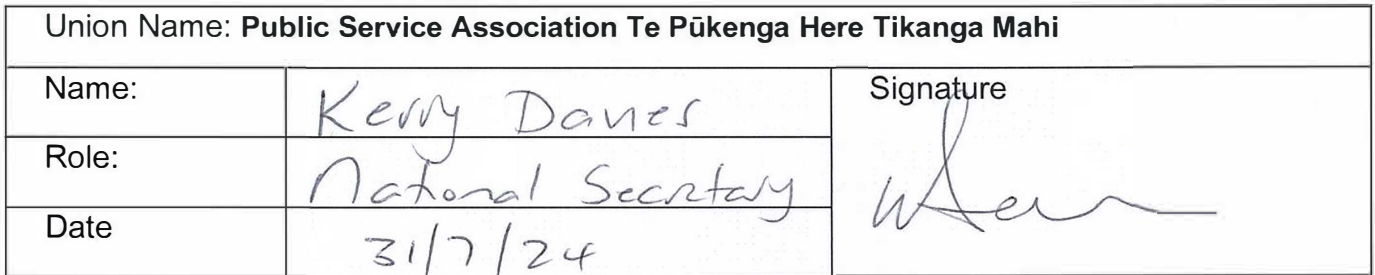 Union Name: Public Service Association Te Pūkenga Here Tikanga Mahi
Name: Kerry Davies Signature
Role: National Secretary
Date 31/7/24